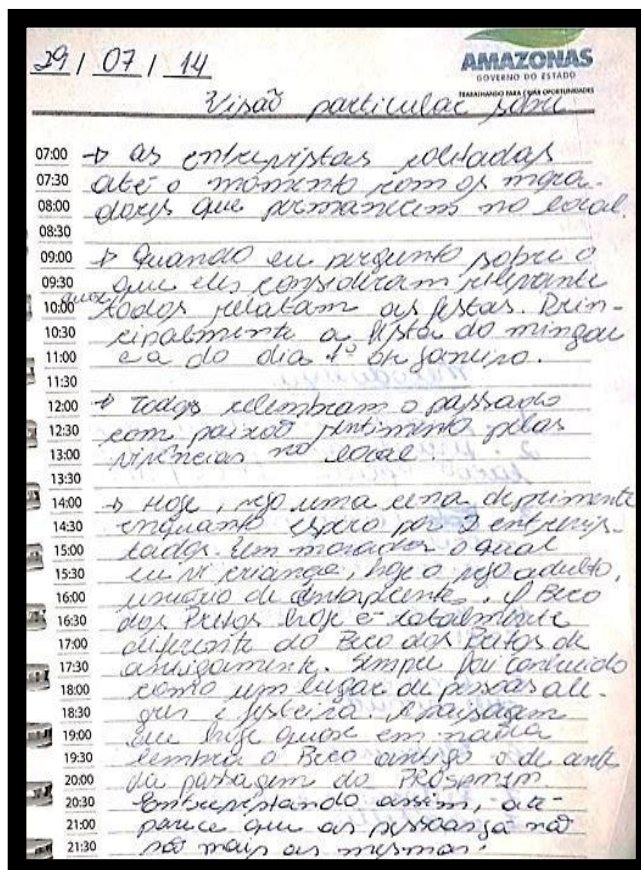 AMAZONAS
GOVERNO DO ESTADO
TRABALHANDO PARA CRIAR OPORTUNIDADES
29 / 07 / 14
Visão particular sobre
07:00 → as entrevistas coletadas
07:30 até o momento com os mora-
08:00 dores que permanecem no local.
08:30
09:00 → Quando eu pergunto sobre o
09:30 que eles consideram relevante
10:00 quase todos relatam as festas. Prin-
10:30 cipalmente a festa do mingau
11:00 e a do dia 1º de janeiro.
11:30
12:00 → Todos relembram o passado
12:30 com paixão sentimento pelas
13:00 vivências no local
13:30
14:00 → Hoje, vejo uma cena deprimente
14:30 enquanto espero por 2 entrevis-
15:00 tados. Um morador o qual
15:30 eu vi criança, hoje o vejo adulto,
16:00 usuário de entorpecentes. O Beco
16:30 dos Pretos hoje é totalmente
17:00 diferente do Beco dos Pretos de
17:30 antigamente. Sempre foi conhecido
18:00 como um lugar de pessoas ale-
18:30 gres e festeira. A paisagem
19:00 que hoje quase em nada
19:30 lembra o Beco antigo o de antes
20:00 da passagem do PROSAMIM.
20:30 Entrevistando assim, até
21:00 parece que as pessoas já não
21:30 são mais as mesmas.